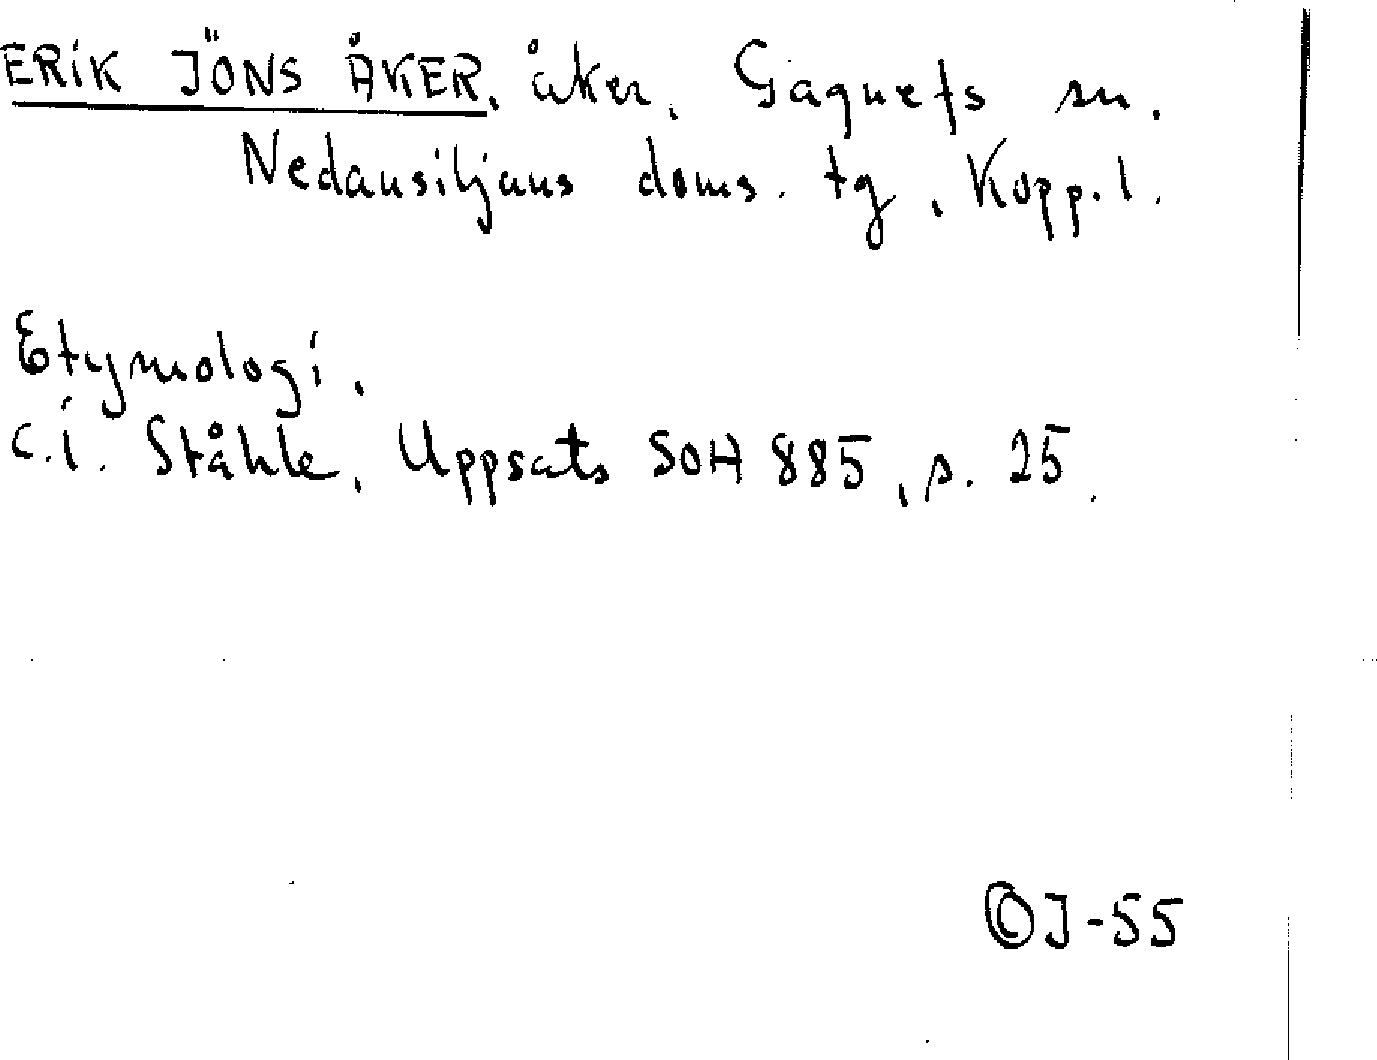 ERIK JÖNS ÅKER, åker, Gagnefs sn.
Nedansiljans doms. tg, Kopp. l.
Etymologi.
C.I. Ståhle, Uppsats SOH 885, s. 25.
©J-55